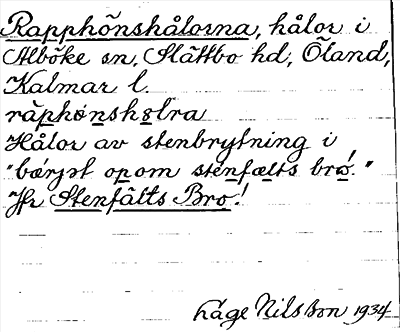 Rapphönshålorna, hålor i
Alböke sn, Slättbo hd, Öland,
Kalmar l.
ràphønsho̱lra
Hålor av stenbrytning i
"bǽrjət opom stenfælts brø!"
Jfr Stenfälts Bro!
Låge Nilsson 1934